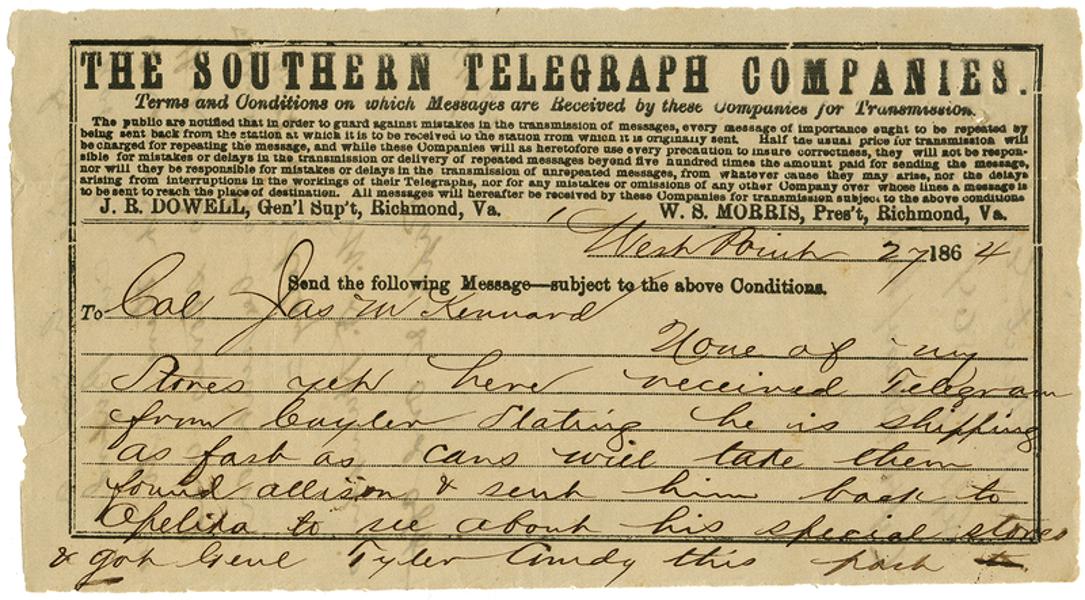 THE SOUTHERN TELEGRAPH COMPANIES.
Terms and Conditions on which Messages are Received by these Companies for Transmission.
The public are notified that in order to guard against mistakes in the transmission of messages, every message of importance ought to be repeated by
being sent back from the station at which it is to be received to the station from which it is originally sent. Half the usual price for transmission will
be charged for repeating the message, and while these Companies will as heretofore use every precaution to insure correctness, they will not be respon-
sible for mistakes or delays in the transmission or delivery of repeated messages beyond five hundred times the amount paid for sending the message,
nor will they be responsible for mistakes or delays in the transmission of unrepeated messages, from whatever cause they may arise, nor for delays
arising from interruptions in the workings of their Telegraphs, nor for any mistakes or omissions of any other Company over whose lines a message is
to be sent to reach the place of destination. All messages will hereafter be received by these Companies for transmission subject to the above conditions
J. R. DOWELL, Gen'l Sup't, Richmond, Va. W. S. MORRIS, Pres't, Richmond, Va.
West Point 27 1864
Send the following Message—subject to the above Conditions.
To Col Jas M Kennard
None of my
Stores yet here received Telegram
from Cuyler Stating he is shipping
as fast as cars will take them
found allison & sent him back to
Opelika to see about his special stores
& got Genl Tyler Comdg this post